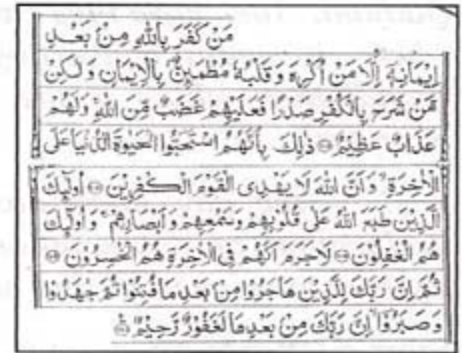 مَنْ كَفَرَ بِاللّٰهِ مِنْۢ بَعْدِ
اِيْمَانِهٖٓ اِلَّا مَنْ اُكْرِهَ وَ قَلْبُهٗ مُطْمَىِٕنٌّۢ بِالْاِيْمَانِ وَ لٰكِنْ
مَّنْ شَرَحَ بِالْكُفْرِ صَدْرًا فَعَلَيْهِمْ غَضَبٌ مِّنَ اللّٰهِ وَ لَهُمْ
عَذَابٌ عَظِيْمٌ ۝ ذٰلِكَ بِاَنَّهُمُ اسْتَحَبُّوا الْحَيٰوةَ الدُّنْيَا عَلَى
الْاٰخِرَةِ ۙ وَ اَنَّ اللّٰهَ لَا يَهْدِى الْقَوْمَ الْكٰفِرِيْنَ ۝ اُولٰٓىِٕكَ
الَّذِيْنَ طَبَعَ اللّٰهُ عَلٰى قُلُوْبِهِمْ وَ سَمْعِهِمْ وَ اَبْصَارِهِمْ ۚ وَ اُولٰٓىِٕكَ
هُمُ الْغٰفِلُوْنَ ۝ لَا جَرَمَ اَنَّهُمْ فِى الْاٰخِرَةِ هُمُ الْخٰسِرُوْنَ ۝
ثُمَّ اِنَّ رَبَّكَ لِلَّذِيْنَ هَاجَرُوْا مِنْۢ بَعْدِ مَا فُتِنُوْا ثُمَّ جٰهَدُوْا
وَ صَبَرُوْٓا ۙ اِنَّ رَبَّكَ مِنْۢ بَعْدِهَا لَغَفُوْرٌ رَّحِيْمٌ ۝